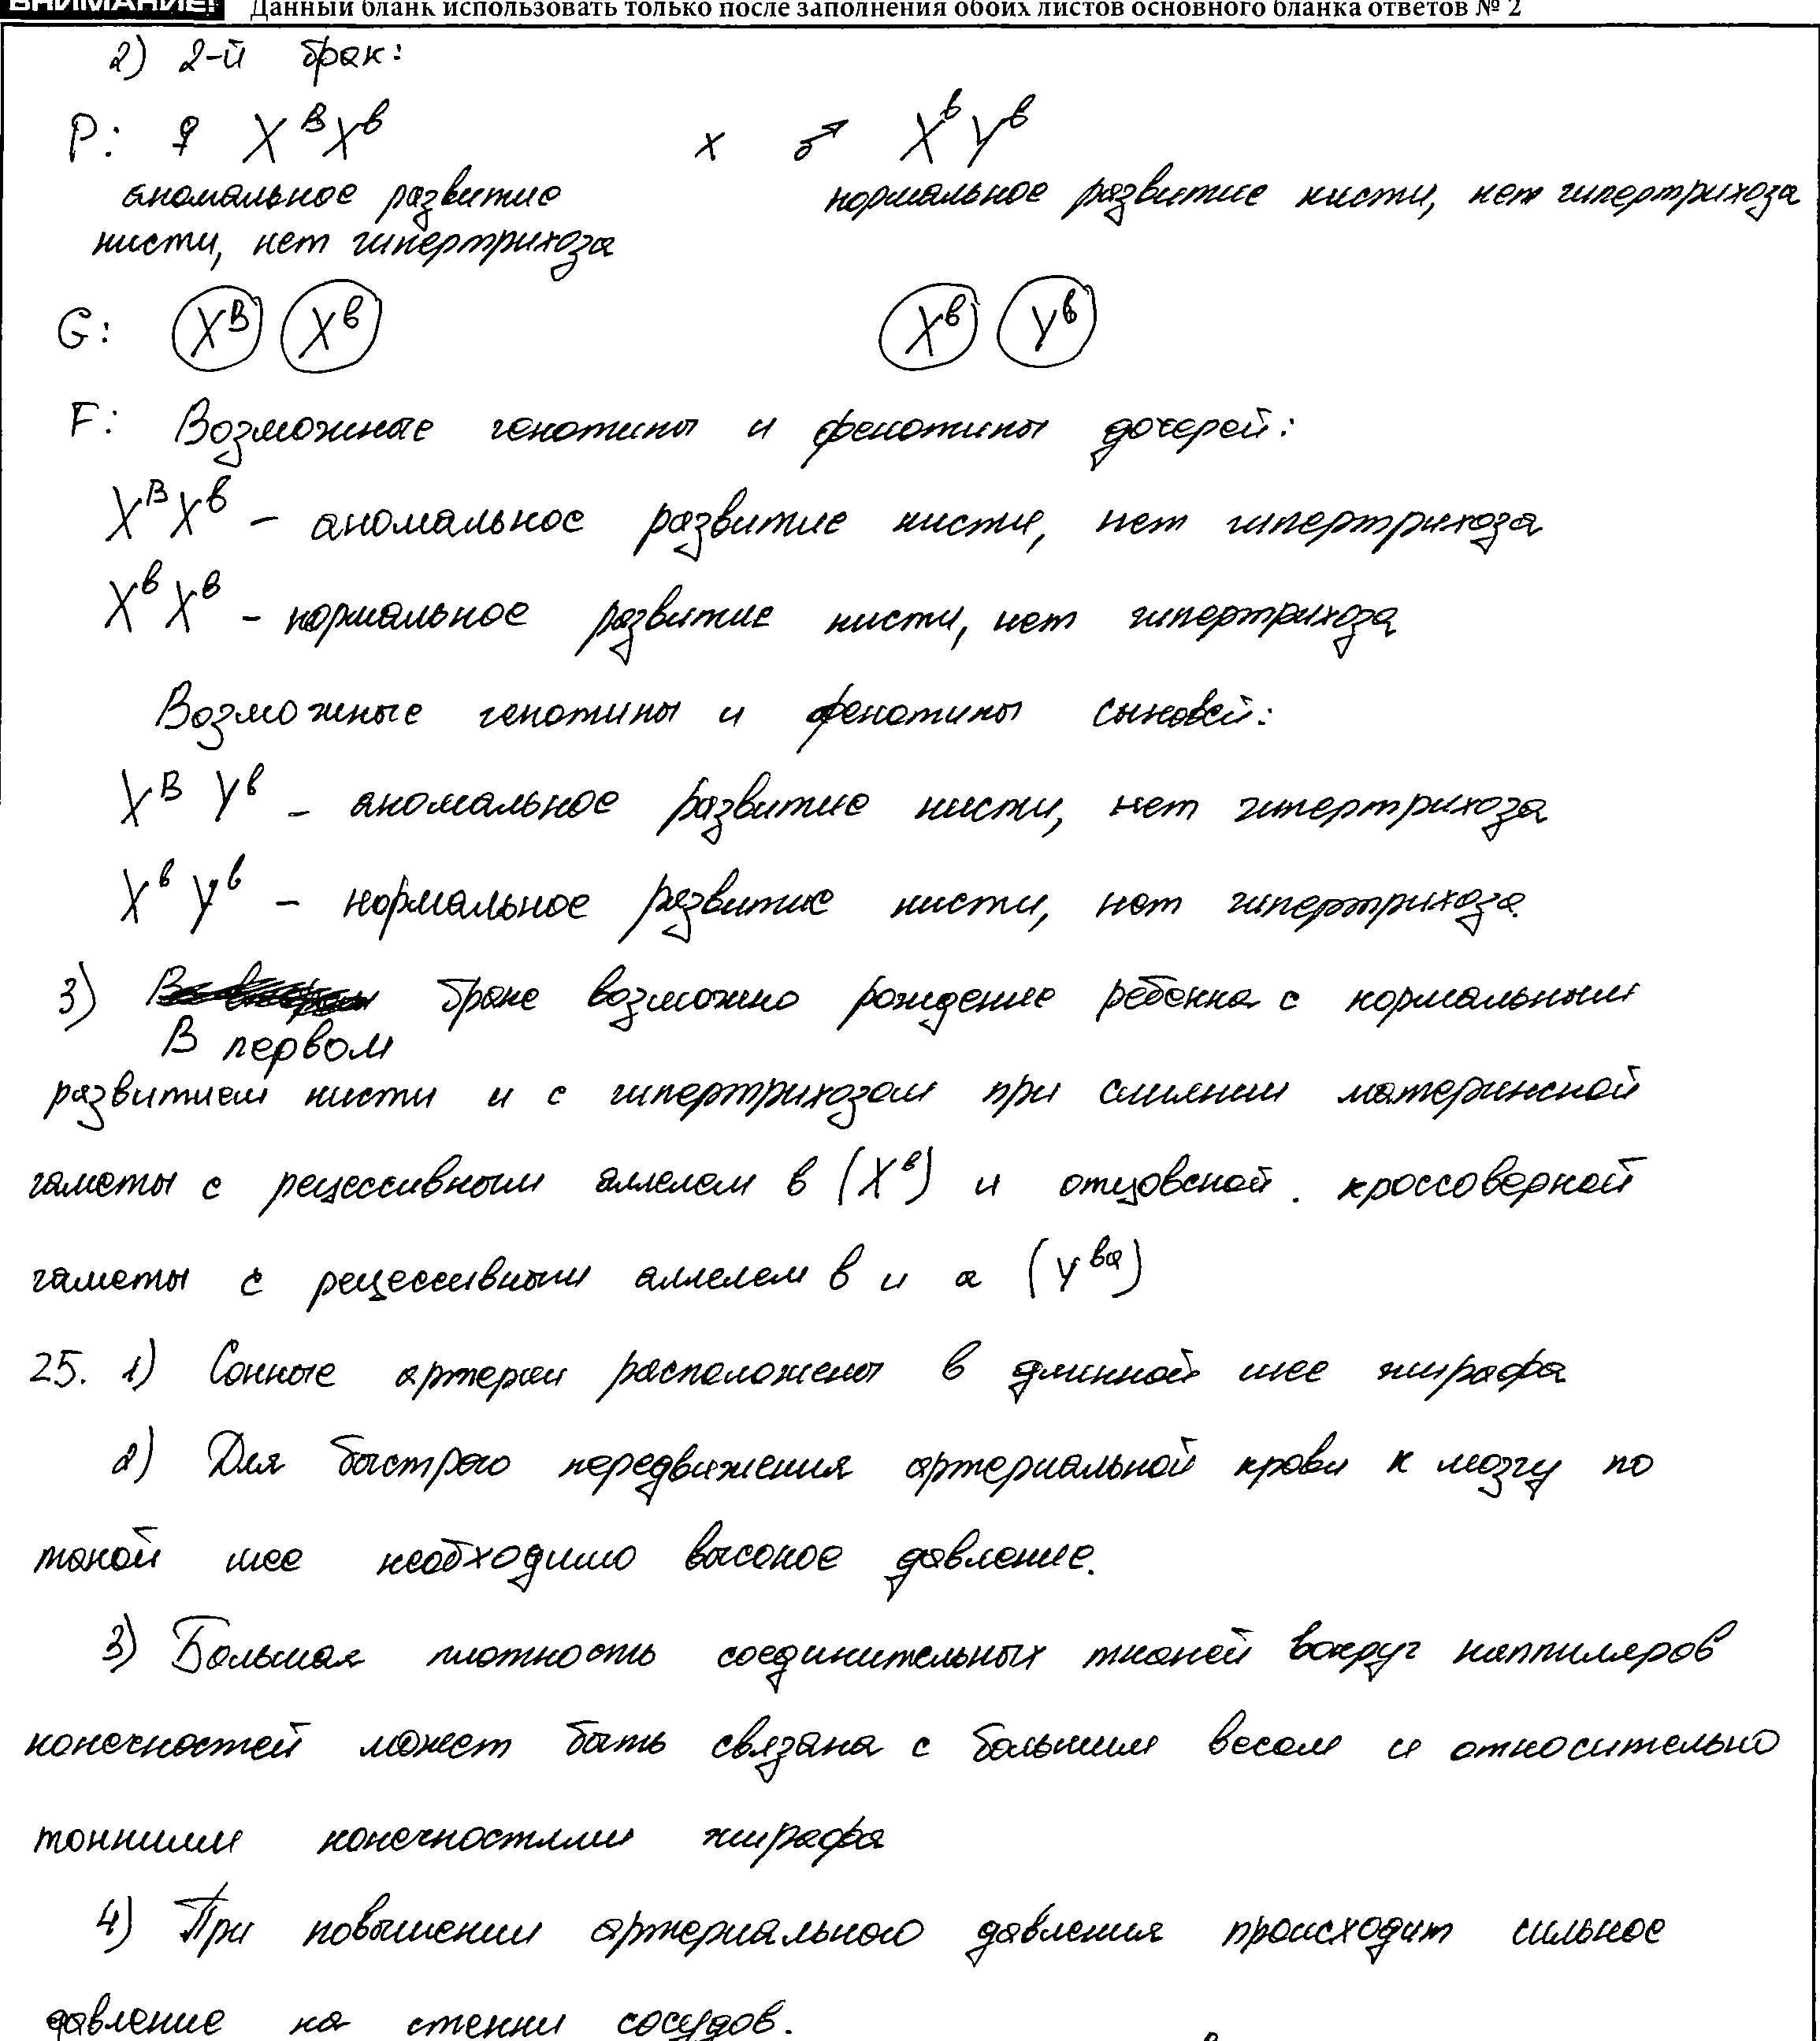 ВНИМАНИЕ! Данный бланк использовать только после заполнения обоих листов основного бланка ответов № 2
2) 2-й брак:
P: ♀ X^B X^b x ♂ X^b Y^b
аномальное развитие нормальное развитие кисти, нет гипертрихоза
кисти, нет гипертрихоза
G: X^B X^b X^b Y^b
F: Возможные генотипы и фенотипы дочерей:
X^B X^b – аномальное развитие кисти, нет гипертрихоза
X^b X^b – нормальное развитие кисти, нет гипертрихоза
Возможные генотипы и фенотипы сыновей:
X^B Y^b – аномальное развитие кисти, нет гипертрихоза
X^b Y^b – нормальное развитие кисти, нет гипертрихоза
3) браке возможно рождение ребенка с нормальным
В первом
развитием кисти и с гипертрихозом при слиянии материнской
гаметы с рецессивным аллелем в (X^в) и отцовской. кроссоверной
гаметы с рецессивным аллелем в и а (Y^ва)
25. 1) Сонные артерии расположены в длинной шее жирафа
2) Для быстрого передвижения артериальной крови к мозгу по
такой шее необходимо высокое давление.
3) Большая плотность соединительных тканей вокруг каппиляров
конечностей может быть связана с большим весом и относительно
тонкими конечностями жирафа
4) При повышении артериального давления происходит сильное
давление на стенки сосудов.